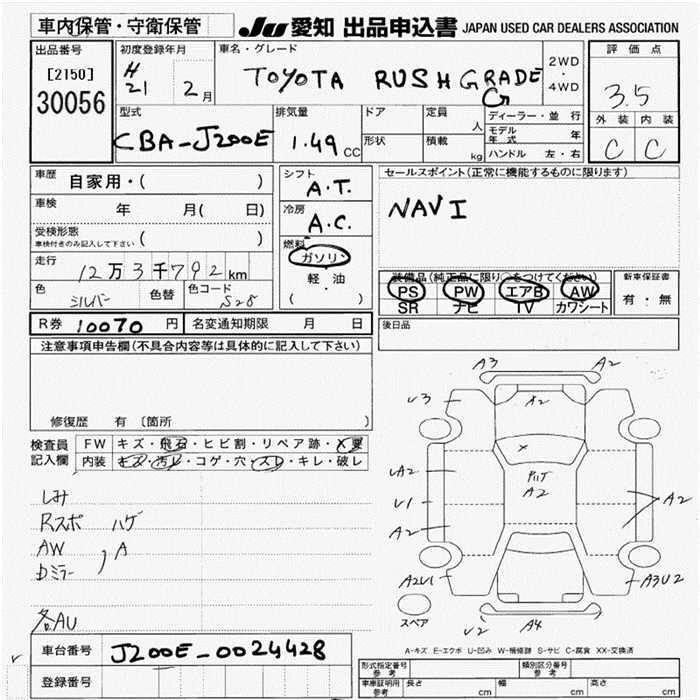 車内保管・守衛保管 JU愛知 出品申込書 JAPAN USED CAR DEALERS ASSOCIATION
出品番号 初度登録年月 車名・グレード 2WD・4WD 評価点
[2150] H21 2月 TOYOTA RUSH G GRADE 3.5
30056
型式 排気量 ドア 定員 人 ディーラー・並行 外装 内装
CBA-J200E 1.49 CC 形状 積載 kg モデル年式 年 C C
ハンドル 左・右
車歴 自家用・( ) シフト A.T. セールスポイント(正常に機能するものに限ります)
車検 年 月( 日) 冷房 A.C. NAVI
受検形態 車検付きのみ記入して下さい ( ) 燃料 ガソリン
走行 12万3千792km 軽・油 装備品(純正品に限り○をつけてください) 新車保証書
色 シルバー 色替 色コード S28 ( ) PS PW エアB AW 有・無
SR ナビ TV カワシート
R券 10070円 名変通知期限 月 日 後日品
注意事項申告欄(不具合内容等は具体的に記入して下さい)
修復歴 有 〔箇所 〕
検査員記入欄 FW キズ・飛石・ヒビ割・リペア跡・X要
内装 キズ・汚レ・コゲ・穴・スレ・キレ・破レ
しみ
Rスポ ハゲ
AW , A
Dミラー
各AU
A3 A2
A2
V3
A2
UA2
U1
A2
A2
A2
A2U1
A3U2
スペア
V2 A4
A-キズ E-エクボ U-凹み W-補修跡 S-サビ C-腐食 XX-交換済
車台番号 J200E-0024428
登録番号
形式指定番号 参考 類別区分番号 参考
車庫証明用 参考 長さ cm 幅 cm 高さ cm